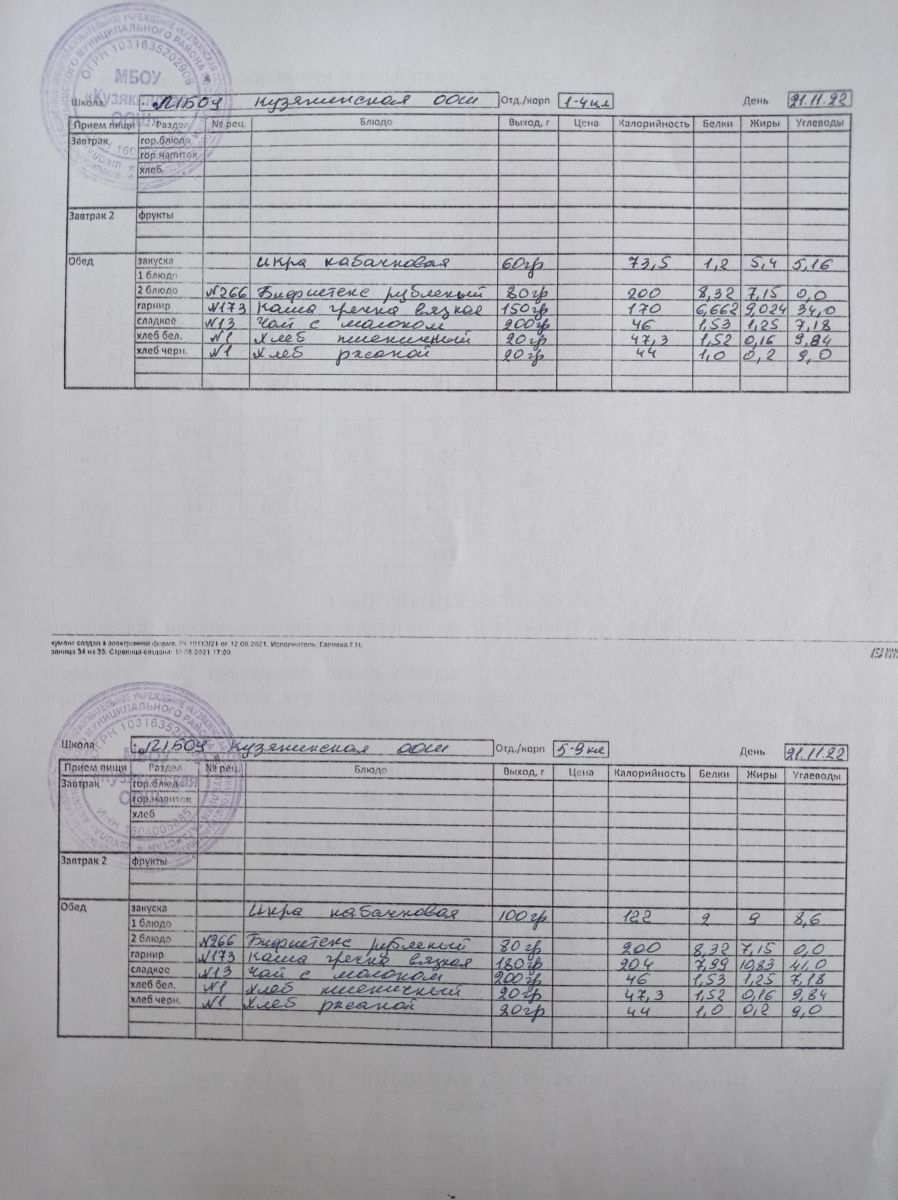 Школа МБОУ Кузякинская ООШ Отд./корп 1-4кл День 21.11.22
Прием пищи Раздел № рец. Блюдо Выход, г Цена Калорийность Белки Жиры Углеводы
Завтрак гор.блюдо
гор.напиток
хлеб
Завтрак 2 фрукты
Обед закуска Икра кабачковая 60гр 73,5 1,2 5,4 5,16
1 блюдо
2 блюдо №266 Бифштекс рубленый 80гр 200 8,32 7,15 0,0
гарнир №173 Каша гречка вязкая 150гр 170 6,662 9,024 34,0
сладкое №13 Чай с молоком 200гр 46 1,53 1,25 7,18
хлеб бел. №1 Хлеб пшеничный 20гр 47,3 1,52 0,16 9,84
хлеб черн. №1 Хлеб ржаной 20гр 44 1,0 0,2 9,0
МБОУ
«Кузякинская
ООШ»
ОГРН 1031635202906
кумент создан в электронной форме. № 10113/21 от 12.08.2021. Исполнитель: Галиева Г.Н.
раница 34 из 35. Страница создана: 11.08.2021 17:09
Школа МБОУ Кузякинская ООШ Отд./корп 5-9кл День 21.11.22
Прием пищи Раздел № рец. Блюдо Выход, г Цена Калорийность Белки Жиры Углеводы
Завтрак гор.блюдо
гор.напиток
хлеб
Завтрак 2 фрукты
Обед закуска Икра кабачковая 100гр 122 2 9 8,6
1 блюдо
2 блюдо №266 Бифштекс рубленый 80гр 200 8,32 7,15 0,0
гарнир №173 Каша гречка вязкая 180гр 204 7,99 10,83 41,0
сладкое №13 Чай с молоком 200гр 46 1,53 1,25 7,18
хлеб бел. №1 Хлеб пшеничный 20гр 47,3 1,52 0,16 9,84
хлеб черн. №1 Хлеб ржаной 20гр 44 1,0 0,2 9,0